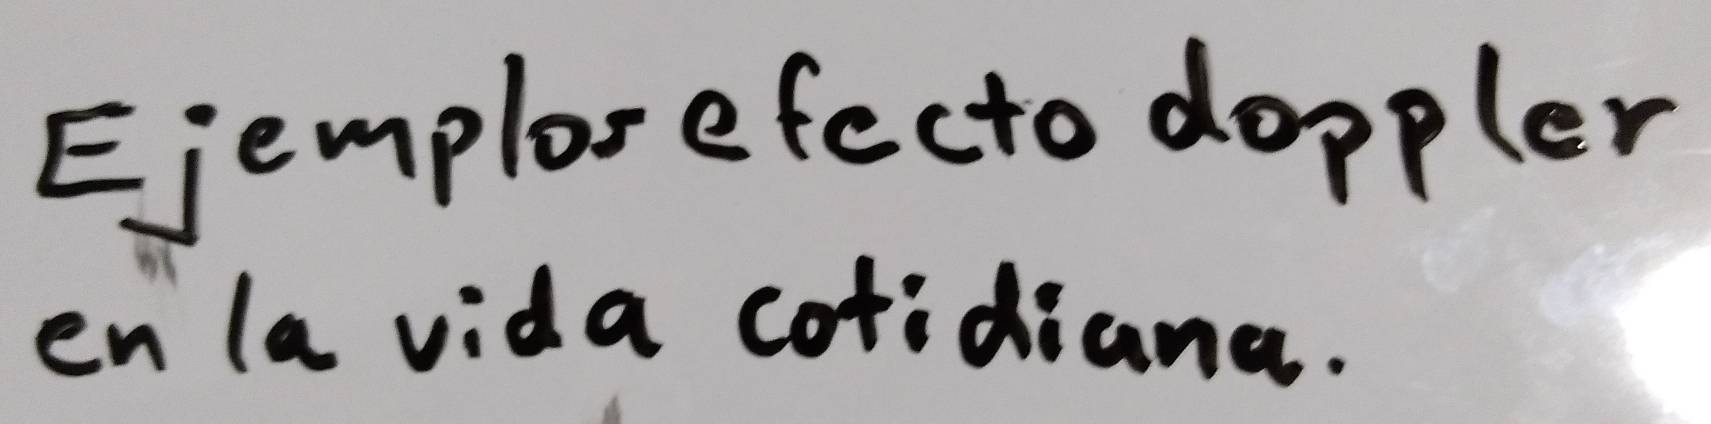 Ejemplos efecto doppler
en la vida cotidiana.